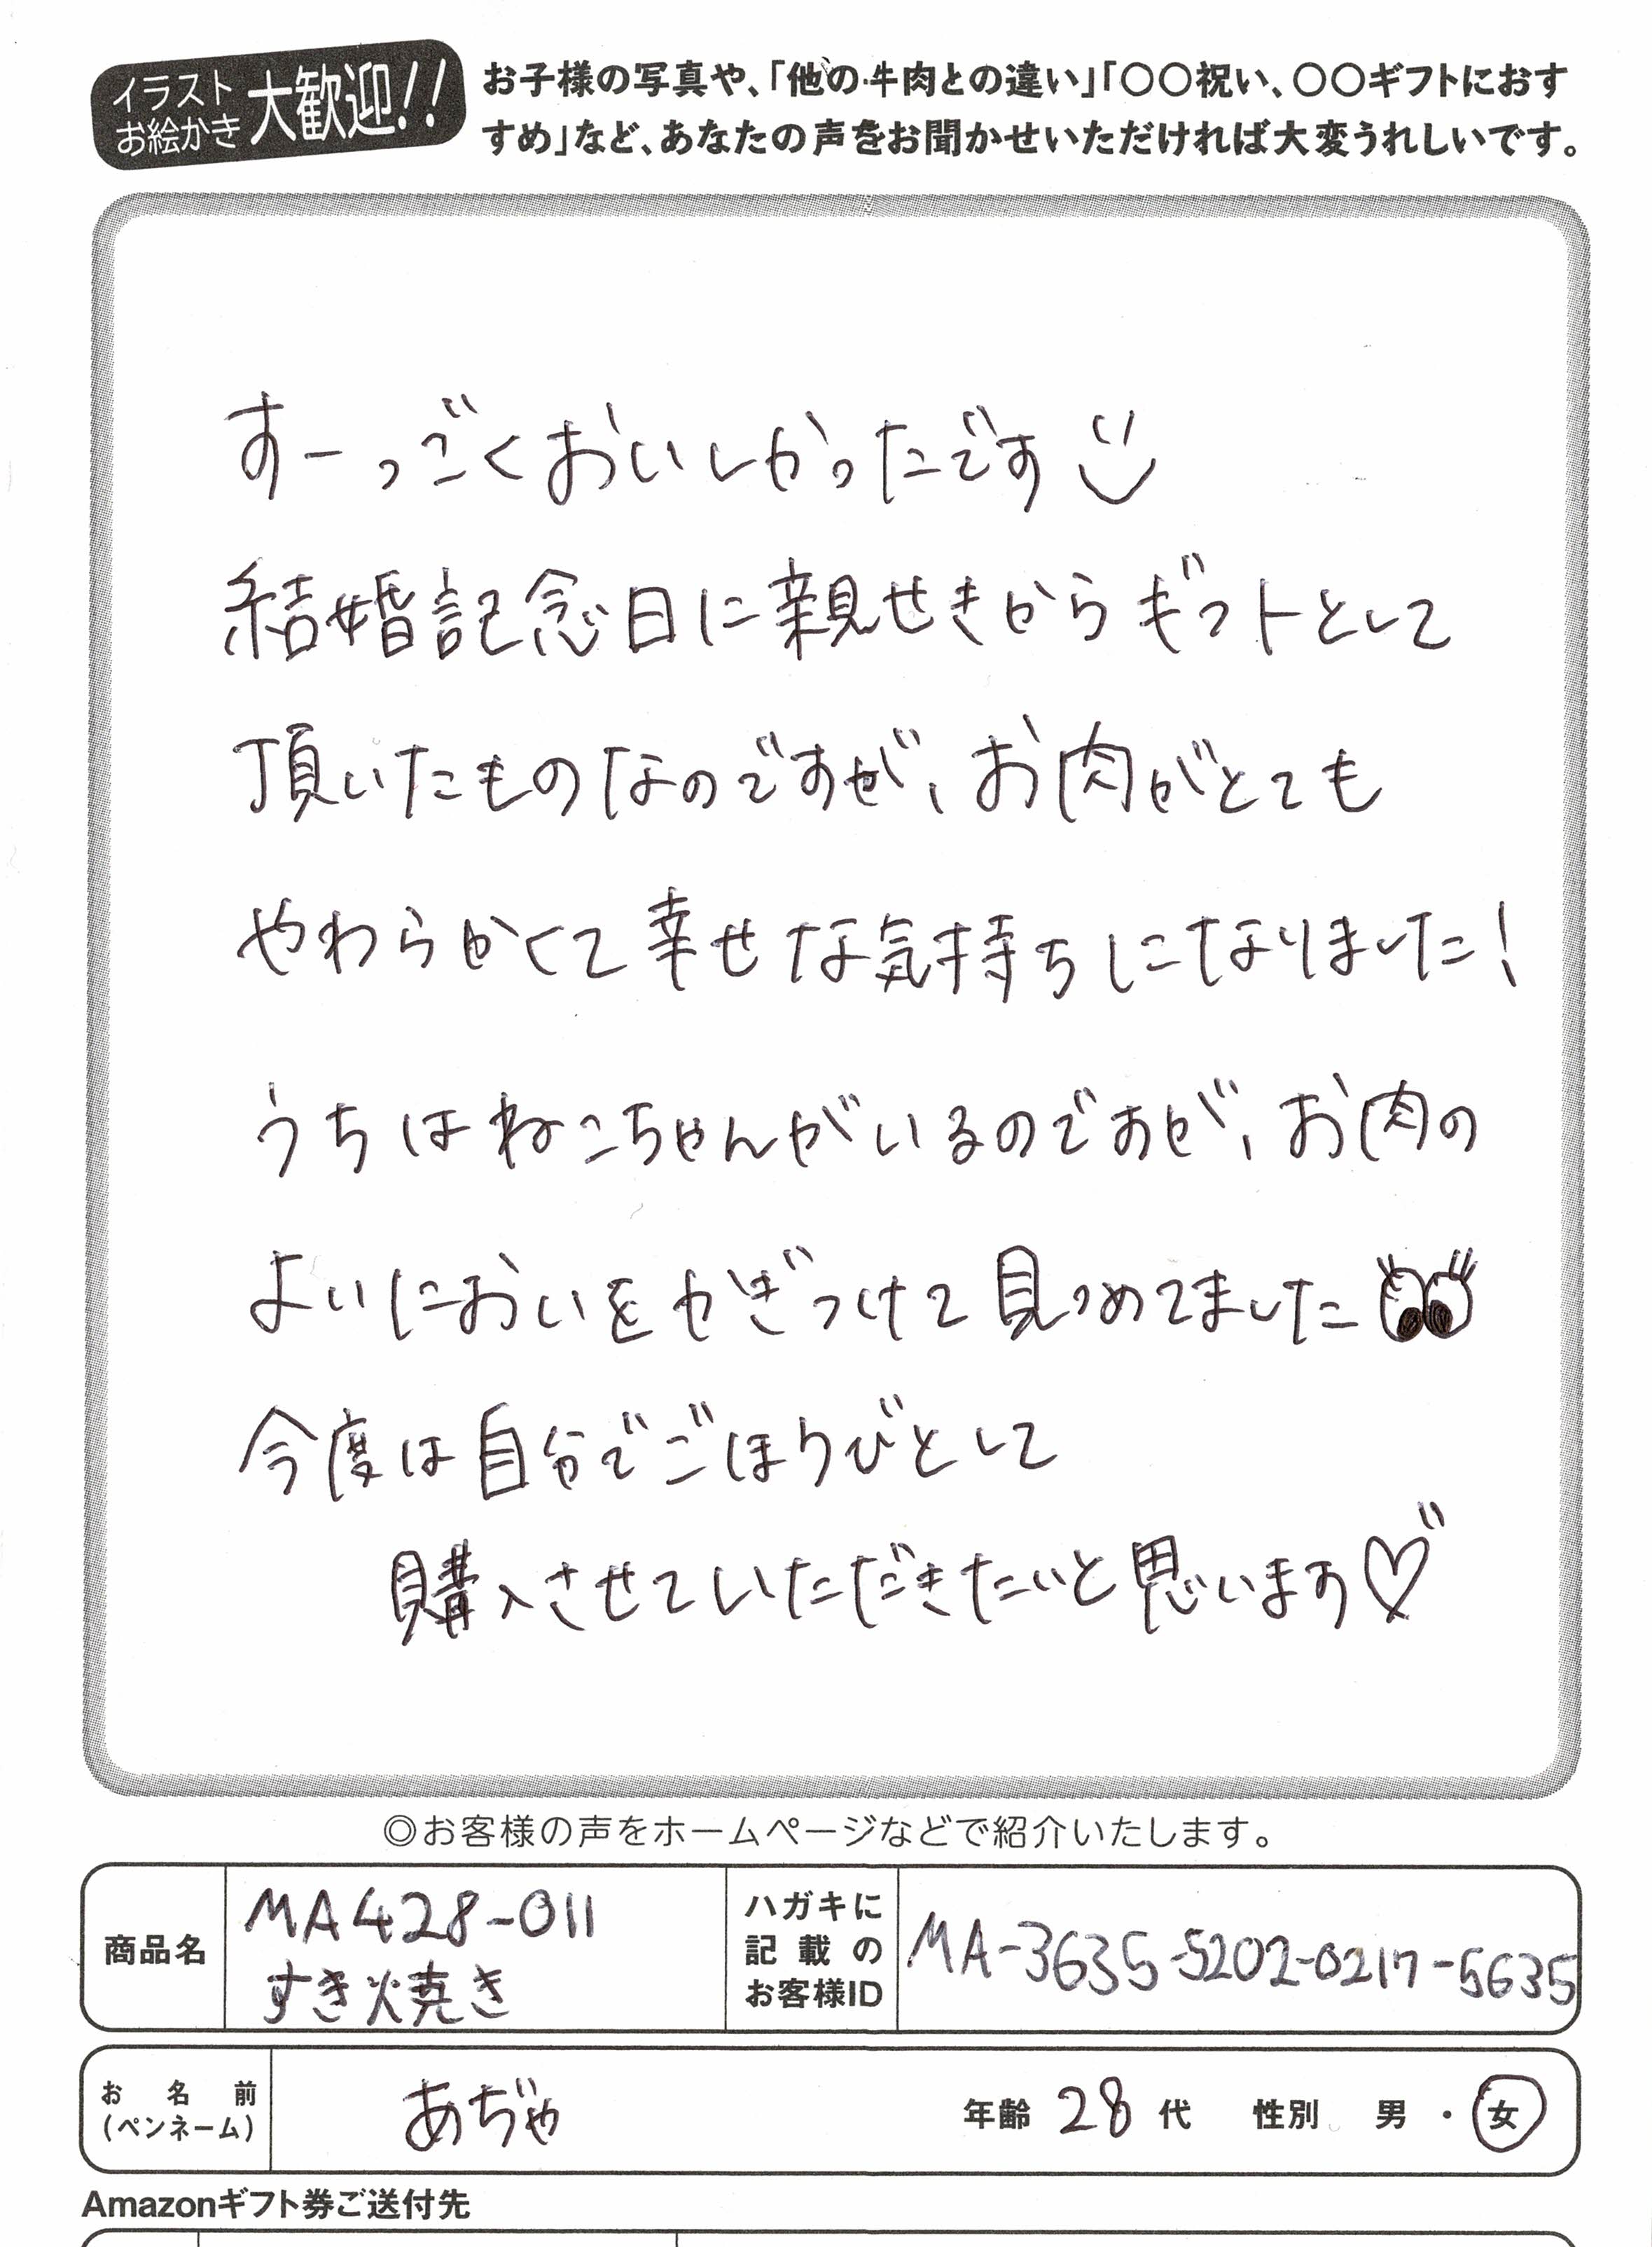 イラスト
お絵かき
大歓迎!!
お子様の写真や、「他の牛肉との違い」「〇〇祝い、〇〇ギフトにおす
すめ」など、あなたの声をお聞かせいただければ大変うれしいです。
すーっごくおいしかったです
結婚記念日に親せきからギフトとして
頂いたものなのですが、お肉がとても
やわらかくて幸せな気持ちになりました！
うちはねこちゃんがいるのですが、お肉の
よいにおいをかぎつけて見つめてました
今度は自分でごほうびとして
購入させていただきたいと思います♡
◎お客様の声をホームページなどで紹介いたします。
商品名
MA428-011
すき焼き
ハガキに
記載の
お客様ID
MA-3635-5202-0217-5635
お名前
(ペンネーム)
あぢゃ
年齢 28 代 性別 男・女
Amazonギフト券ご送付先